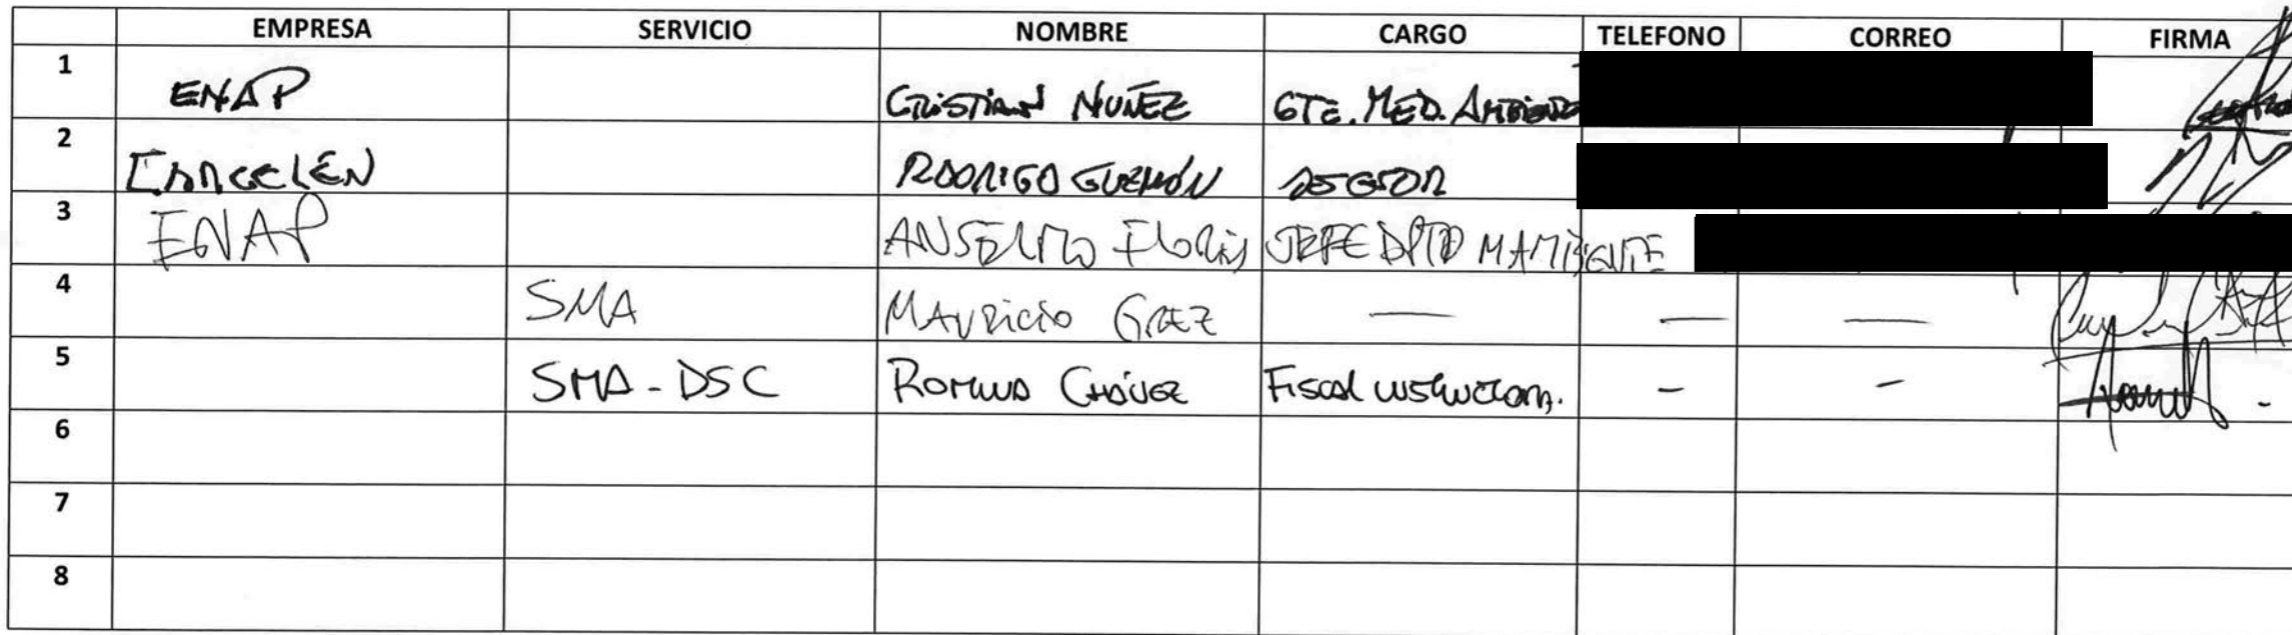 EMPRESA SERVICIO NOMBRE CARGO TELEFONO CORREO FIRMA
1 ENAP CRISTIAN NUÑEZ GTE. MED. AMBIENTE
2 RODRIGO GUZMÁN ASESOR
3 ENAP ANSELMO FLORES JEFE DPTO MAMBIENTE
4 SMA MAURICIO GREZ — — —
5 SMA - DSC ROMINA CHÁVEZ Fiscal - -
6
7
8